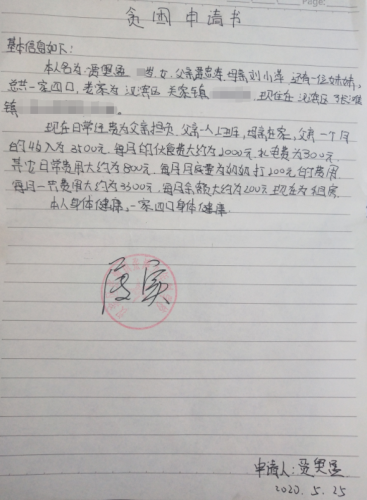 贫困申请书
基本信息如下：
本人名为 岁，女，父亲 母亲刘小萍 还有一位妹妹，
总共一家四口，老家为汉滨区关家镇 ，现住在汉滨区张滩
镇 。
现在日常开支为父亲担负，父亲一人上班，母亲在家，父亲一个月
的收入为3500元，每月的伙食费大约为2000元，水电费为300元，
其它日常费用大约为800元，每月月底要为奶奶打200元的费用
每月一共费用大约为3300元，每月余额大约为200元，现在为租房
本人身体健康，一家四口身体健康。
属实
申请人：
2020.5.25